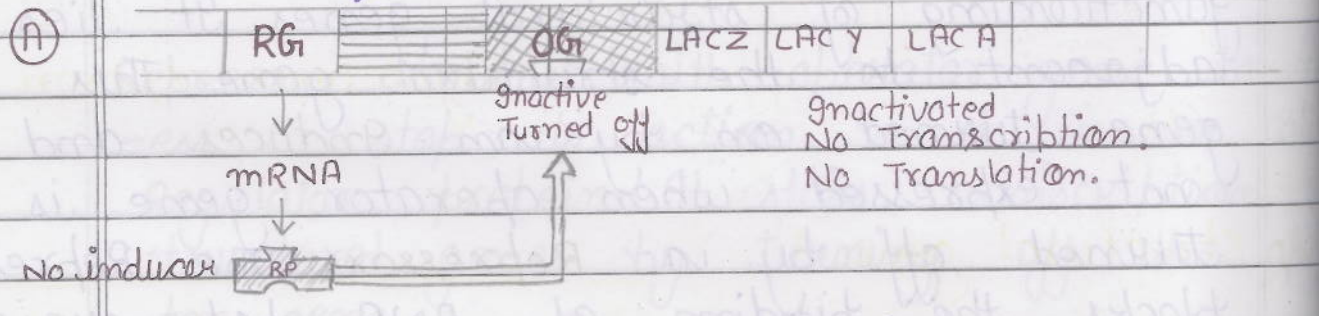 A
RG OG LACZ LAC Y LAC A
Inactive
Turned off
Inactivated
No Transcribtion.
No Translation.
mRNA
No inducer RP